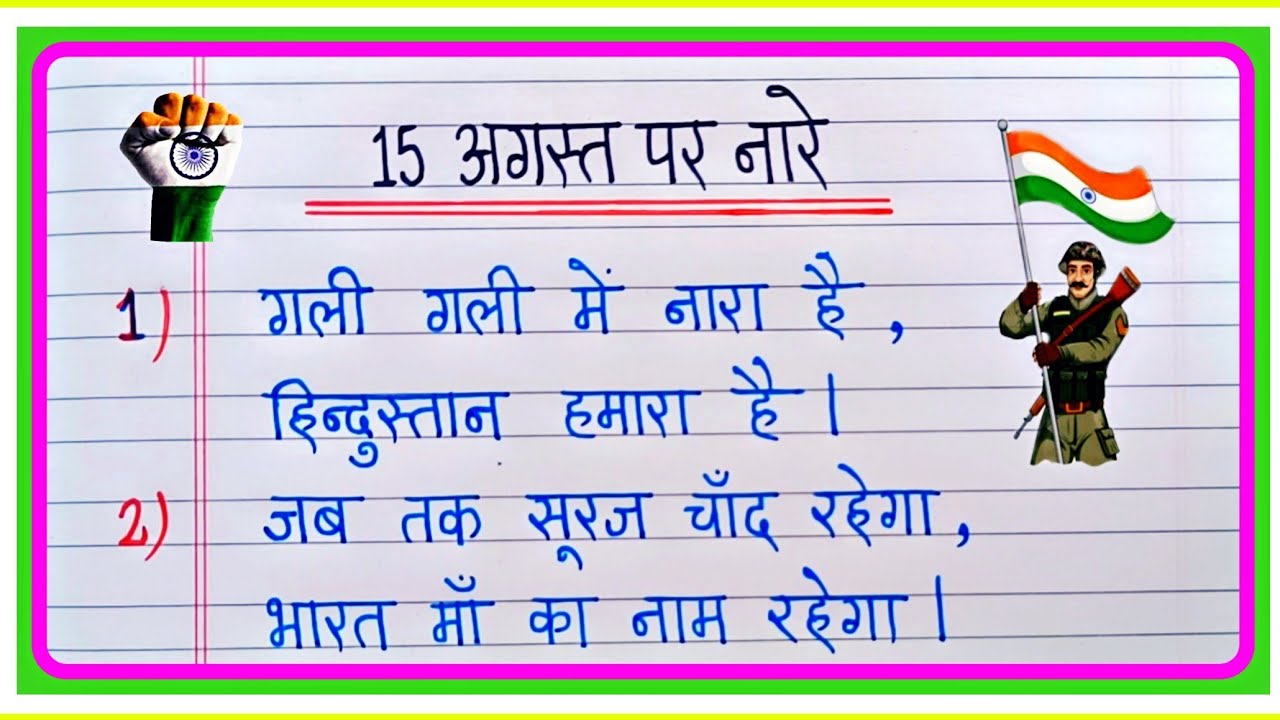 15 अगस्त पर नारे
1) गली गली में नारा है ,
हिन्दुस्तान हमारा है ।
2) जब तक सूरज चाँद रहेगा ,
भारत माँ का नाम रहेगा ।